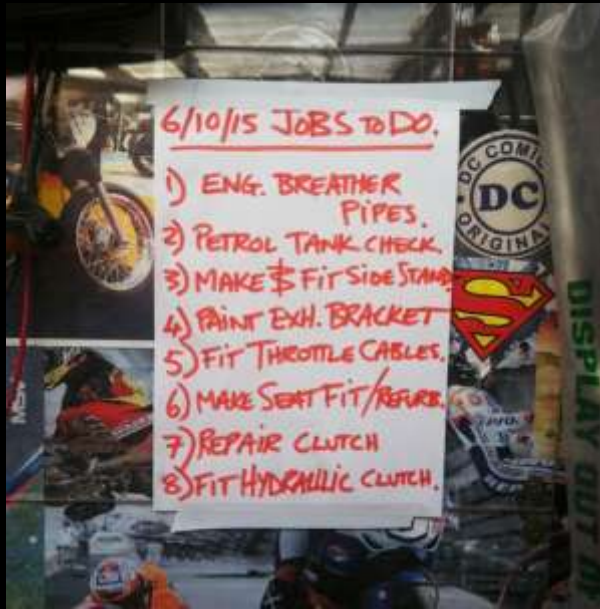 6/10/15 JOBS TO DO.
1) ENG. BREATHER
PIPES.
2) PETROL TANK CHECK.
3) MAKE $ FIT SIDE STAND
4) PAINT EXH. BRACKET
5) FIT THROTTLE CABLES.
6) MAKE SEAT FIT/REFURB.
7) REPAIR CLUTCH
8) FIT HYDRALLIC CLUTCH.
DC COMIC
DC
ORIGINA
S
DISPLAY OUT